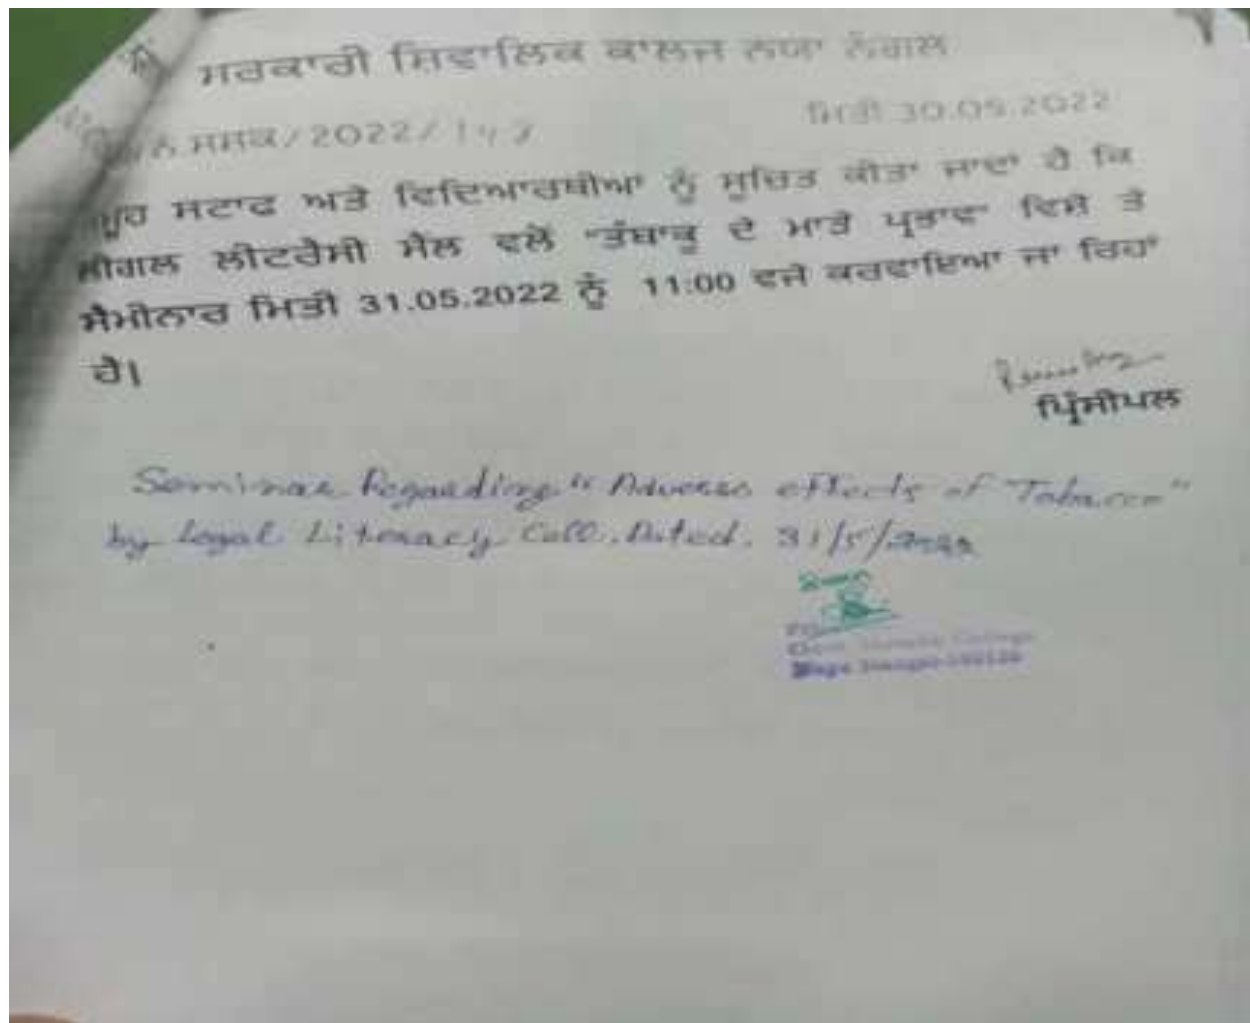 ਸਰਕਾਰੀ ਸ਼ਿਵਾਲਿਕ ਕਾਲਜ ਨਯਾ ਨੰਗਲ
ਸਸਕ/2022/ ਮਿਤੀ 30.05.2022
ਸਟਾਫ ਅਤੇ ਵਿਦਿਆਰਥੀਆਂ ਨੂੰ ਸੂਚਿਤ ਕੀਤਾ ਜਾਦਾਂ ਹੈ ਕਿ
ਲੀਗਲ ਲੀਟਰੈਸੀ ਸੈਲ ਵਲੋਂ "ਤੰਬਾਕੂ ਦੇ ਮਾੜੇ ਪ੍ਰਭਾਵ" ਵਿਸ਼ੇ ਤੇ
ਸੈਮੀਨਾਰ ਮਿਤੀ 31.05.2022 ਨੂੰ 11:00 ਵਜੇ ਕਰਵਾਇਆ ਜਾ ਰਿਹਾਂ
ਹੈ।
ਪ੍ਰਿੰਸੀਪਲ
Seminar Regarding "Adverse effects of Tobacco"
by Legal Literacy Cell. Dated. 31/5/2022
College
Naya Nangal